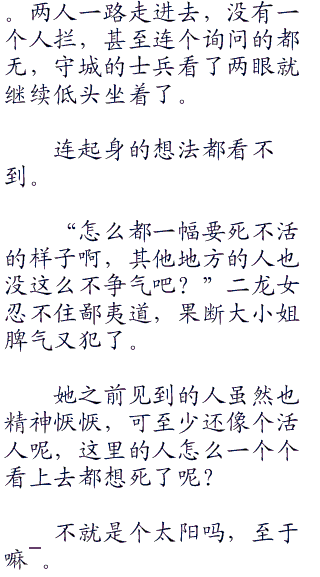 。两人一路走进去，没有一
个人拦，甚至连个询问的都
无，守城的士兵看了两眼就
继续低头坐着了。
连起身的想法都看不
到。
“怎么都一幅要死不活
的样子啊，其他地方的人也
没这么不争气吧？”二龙女
忍不住鄙夷道，果断大小姐
脾气又犯了。
她之前见到的人虽然也
精神恹恹，可至少还像个活
人呢，这里的人怎么一个个
看上去都想死了呢？
不就是个太阳吗，至于
嘛¯。